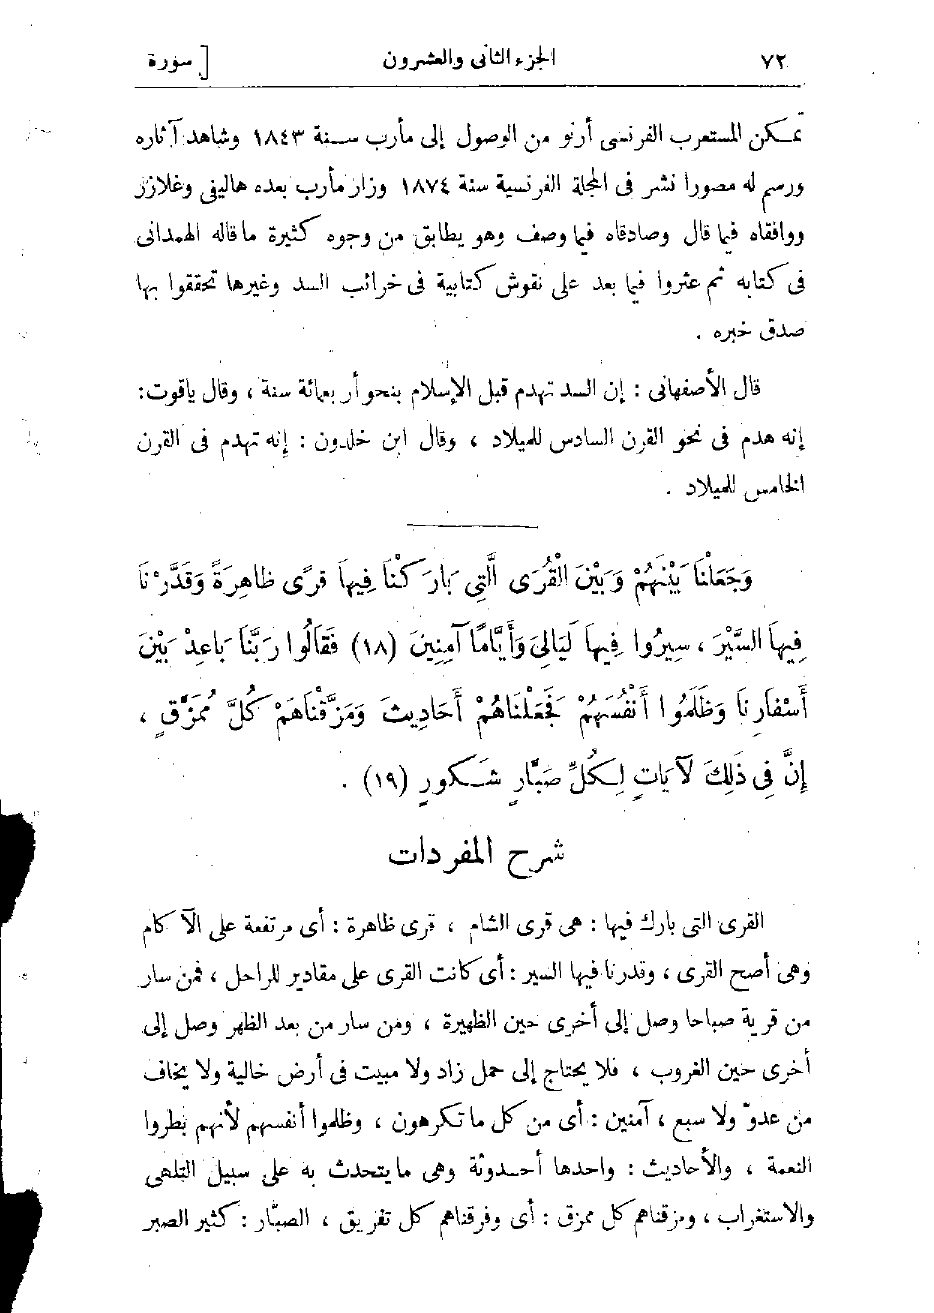 ٧٢ الجزء الثانى والعشرون [ سورة
تمكن المستعرب الفرنسى أرنو من الوصول إلى مأرب سنة ١٨٤٣ وشاهد آثاره
ورسم له مصورا نشر فى المجلة الفرنسية سنة ١٨٧٤ وزار مأرب بعده هاليفى وغلازر
ووافقاه فيما قال وصادقاه فيما وصف وهو يطابق من وجوه كثيرة ما قاله الهمدانى
فى كتابه ثم عثروا فيما بعد على نقوش كتابية فى خرائب السد وغيرها تحققوا بها
صدق خبره .
قال الأصفهانى : إن السد تهدم قبل الإسلام بنحو أربعمائة سنة ، وقال ياقوت :
إنه هدم فى نحو القرن السادس للميلاد ، وقال ابن خلدون : إنه تهدم فى القرن
الخامس للميلاد .
وَجَعَلْنَا بَيْنَهُمْ وَبَيْنَ الْقُرَى الَّتِي بَارَكْنَا فِيهَا قُرًى ظَاهِرَةً وَقَدَّرْنَا
فِيهَا السَّيْرَ ، سِيرُوا فِيهَا لَيَالِيَ وَأَيَّامًا آمِنِينَ (١٨) فَقَالُوا رَبَّنَا بَاعِدْ بَيْنَ
أَسْفَارِنَا وَظَلَمُوا أَنْفُسَهُمْ فَجَعَلْنَاهُمْ أَحَادِيثَ وَمَزَّقْنَاهُمْ كُلَّ مُمَزَّقٍ ،
إِنَّ فِي ذَلِكَ لَآيَاتٍ لِكُلِّ صَبَّارٍ شَكُورٍ (١٩) .
شرح المفردات
القرى التى بارك فيها : هى قرى الشام ، قرى ظاهرة : أى مرتفعة على الآكام
وهى أصح القرى ، وقدرنا فيها السير : أى كانت القرى على مقادير للراحل ، فمن سار
من قرية صباحا وصل إلى أخرى حين الظهيرة ، ومن سار من بعد الظهر وصل إلى
أخرى حين الغروب ، فلا يحتاج إلى حمل زاد ولا مبيت فى أرض خالية ولا يخاف
من عدوّ ولا سبع ، آمنين : أى من كل ما تكرهون ، وظلموا أنفسهم لأنهم بطروا
النعمة ، والأحاديث : واحدها أحدوثة وهى ما يتحدث به على سبيل التلهى
والاستغراب ، ومزقناهم كل ممزق : أى وفرقناهم كل تفريق ، الصبّار : كثير الصبر